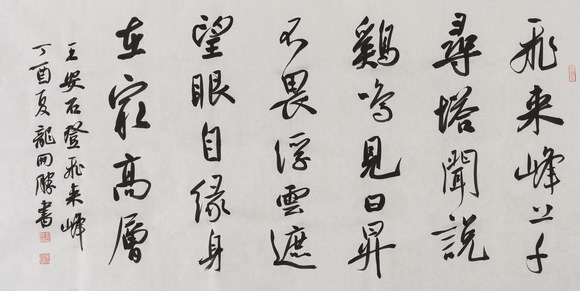 飛来峰上千
尋塔聞説
鷄鳴見日昇
不畏浮雲遮
望眼自緣身
在㝡高層
王安石登飛来峰
丁酉夏龍開勝書